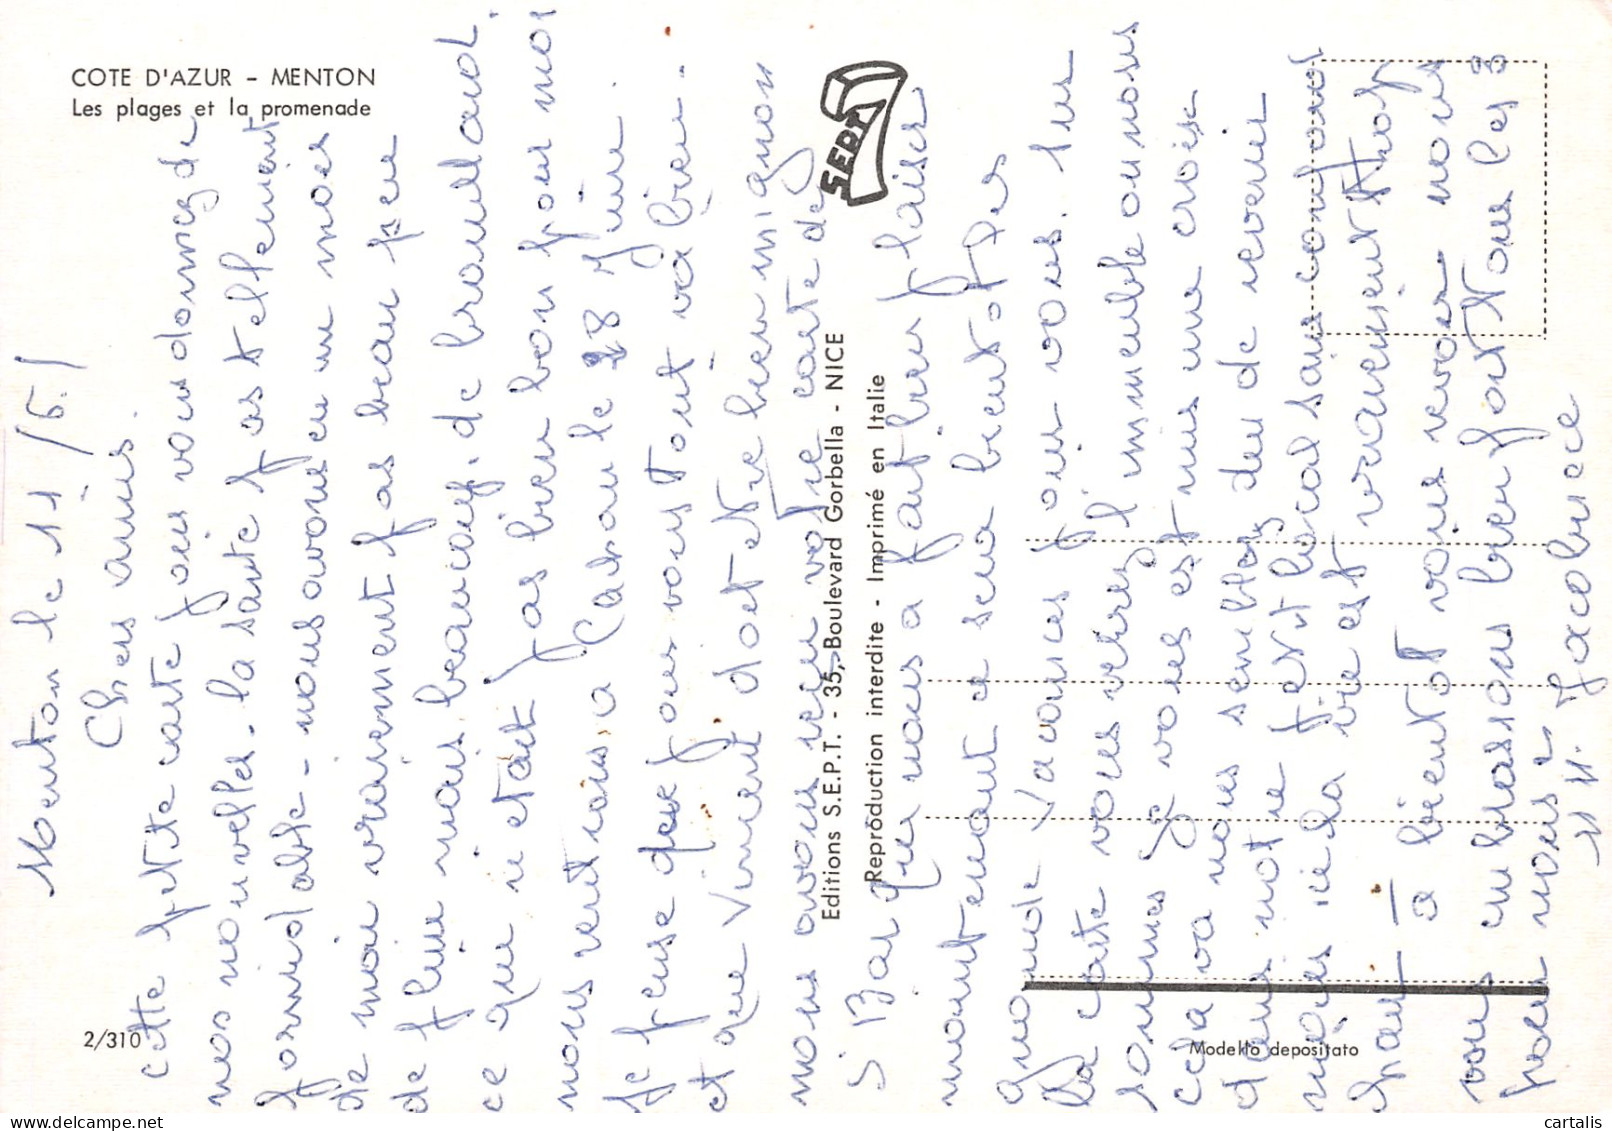 COTE D'AZUR - MENTON
Les plages et la promenade
SEPT
Editions S.E.P.T. - 35, Boulevard Gorbella - NICE
Reproduction interdite - Imprimé en Italie
2/310
Modello depositato
Menton le 11/6/
Chers amis
cette petite carte pour vous donnez de
nos nouvelles. la sante pas tellement
formidable - nous avons eu un mois
de mai vraiment pas beau peu
de pluie mais beaucoup de brouillard.
ce qui n etait pas bien bon pour moi
nous rentrons a Cachan le 28 Juin.
Je pense que pour vous tout va bien.
et que Vincent doit etre bien mignon
nous avons reçu votre carte de
S Bar qui nous a fait bien plaisir
maintenant ce sera bientot les
grande Vacances pour vous. sur
la carte vous verrez l'immeuble ou nous
sommes je vous est mis une croix
cela va nous sembler du de revenir
dans notre petit local sans confort
mais ici la vie est vraiment trop
- a bientot vous revoir nous
vous embrassons bien fort tous les 3
pour nous 2
Jacobiece
cartalis